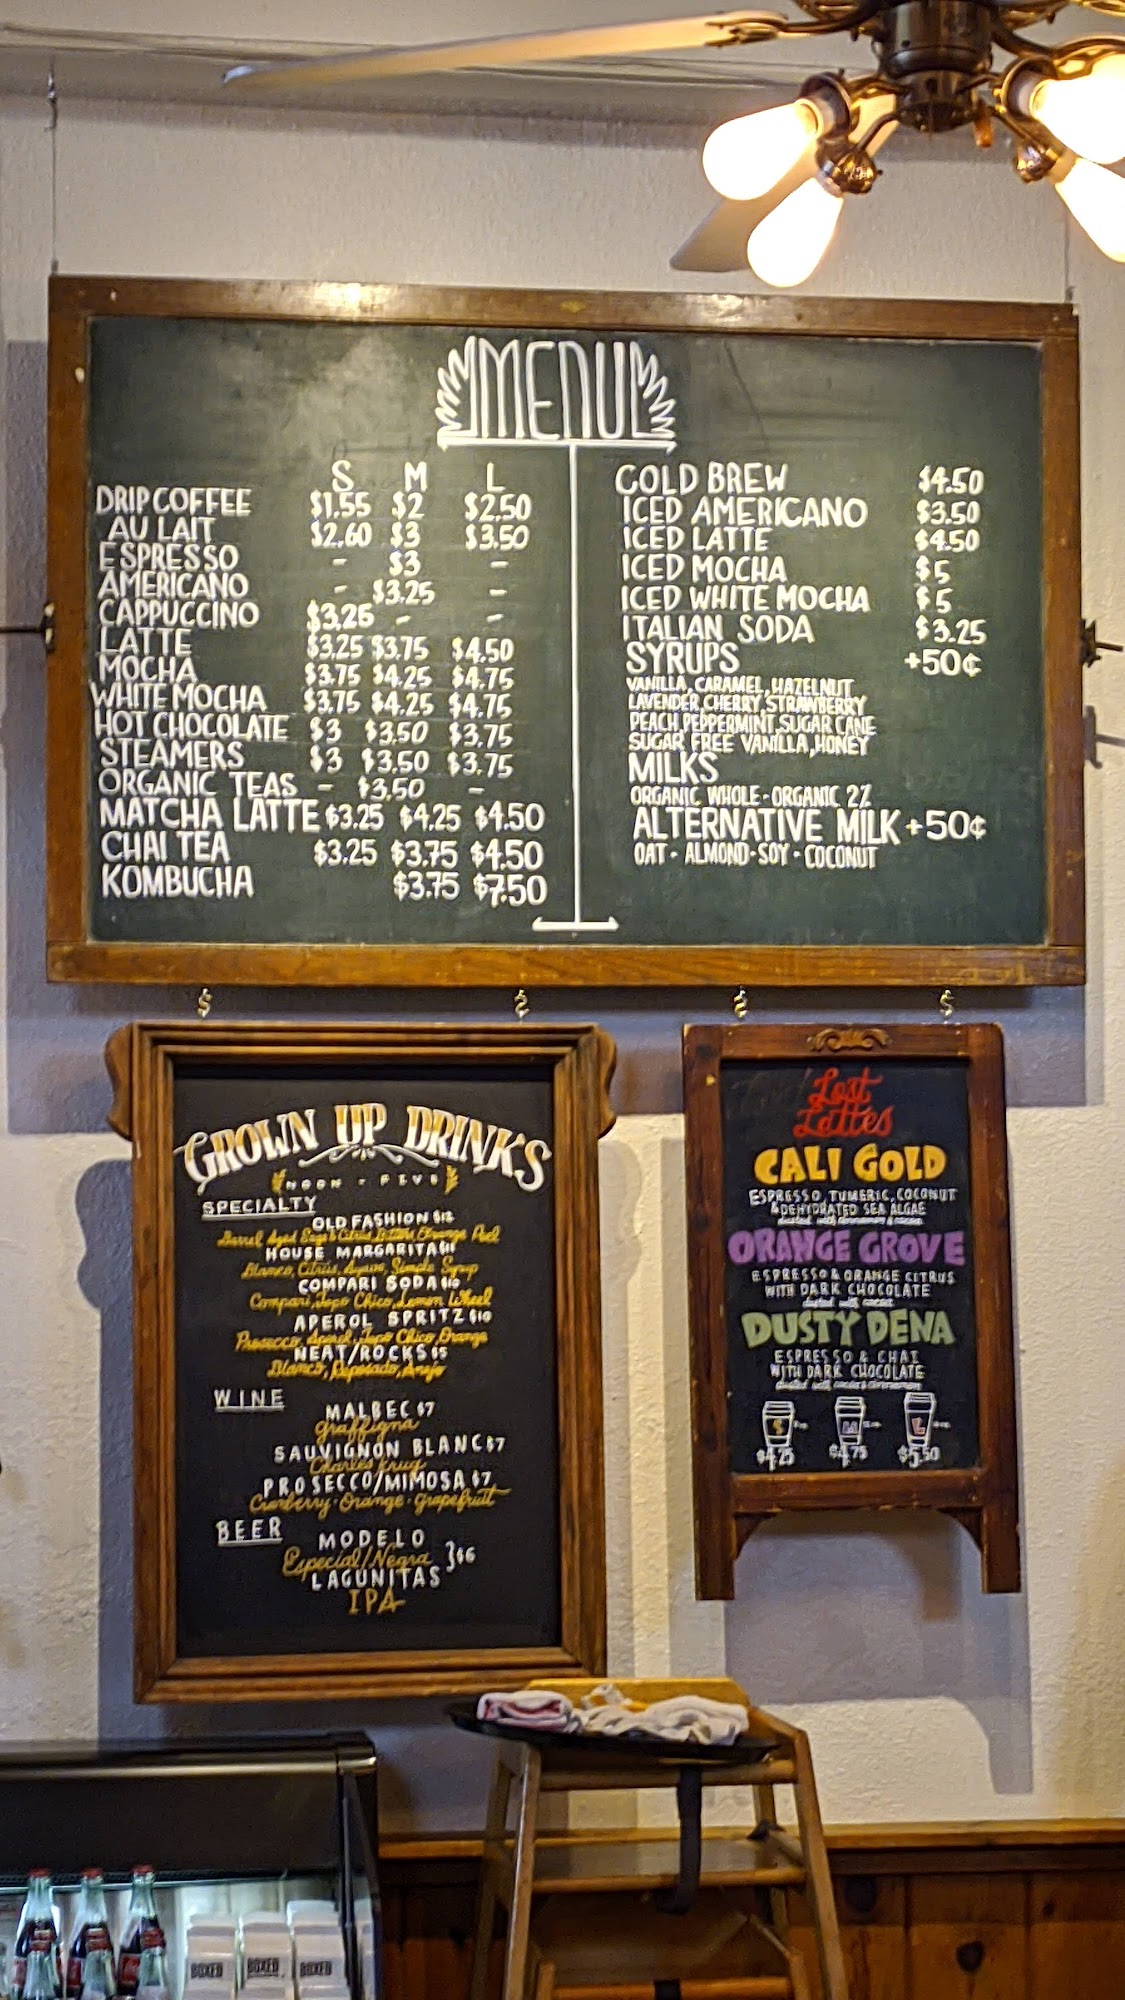 MENU
S M L
DRIP COFFEE $1.55 $2 $2.50
AU LAIT $2.60 $3 $3.50
ESPRESSO - $3 -
AMERICANO - $3.25 -
CAPPUCCINO $3.25 - -
LATTE $3.25 $3.75 $4.50
MOCHA $3.75 $4.25 $4.75
WHITE MOCHA $3.75 $4.25 $4.75
HOT CHOCOLATE $3 $3.50 $3.75
STEAMERS $3 $3.50 $3.75
ORGANIC TEAS - $3.50 -
MATCHA LATTE $3.25 $4.25 $4.50
CHAI TEA $3.25 $3.75 $4.50
KOMBUCHA $3.75 $7.50
COLD BREW $4.50
ICED AMERICANO $3.50
ICED LATTE $4.50
ICED MOCHA $5
ICED WHITE MOCHA $5
ITALIAN SODA $3.25
SYRUPS +50¢
VANILLA, CARAMEL, HAZELNUT
LAVENDER, CHERRY, STRAWBERRY
PEACH, PEPPERMINT, SUGAR CANE
SUGAR FREE VANILLA, HONEY
MILKS
ORGANIC WHOLE - ORGANIC 2%
ALTERNATIVE MILK +50¢
OAT - ALMOND - SOY - COCONUT
GROWN UP DRINKS
NOON - FIVE
SPECIALTY
OLD FASHION $12
Barrel Aged Sage & Citrus Bitters, Orange Peel
HOUSE MARGARITA $11
Blanco, Citrus, Agave, Simple Syrup
COMPARI SODA $10
Compari, Topo Chico, Lemon Wheel
APEROL SPRITZ $10
Prosecco, Aperol, Topo Chico, Orange
NEAT/ROCKS $5
Blanco, Reposado, Anejo
WINE
MALBEC $7
Graffigna
SAUVIGNON BLANC $7
Charles Krug
PROSECCO/MIMOSA $7
Cranberry - Orange - Grapefruit
BEER
MODELO
Especial/Negra } $6
LAGUNITAS
IPA
Lost
Lattes
CALI GOLD
ESPRESSO, TUMERIC, COCONUT
& DEHYDRATED SEA ALGAE
dusted with cinnamon & cacao
ORANGE GROVE
ESPRESSO & ORANGE CITRUS
WITH DARK CHOCOLATE
dusted with cacao
DUSTY DENA
ESPRESSO & CHAI
WITH DARK CHOCOLATE
dusted with cacao & cinnamon
S M L
$4.25 $4.75 $5.50
BOXED BOXED BOXED